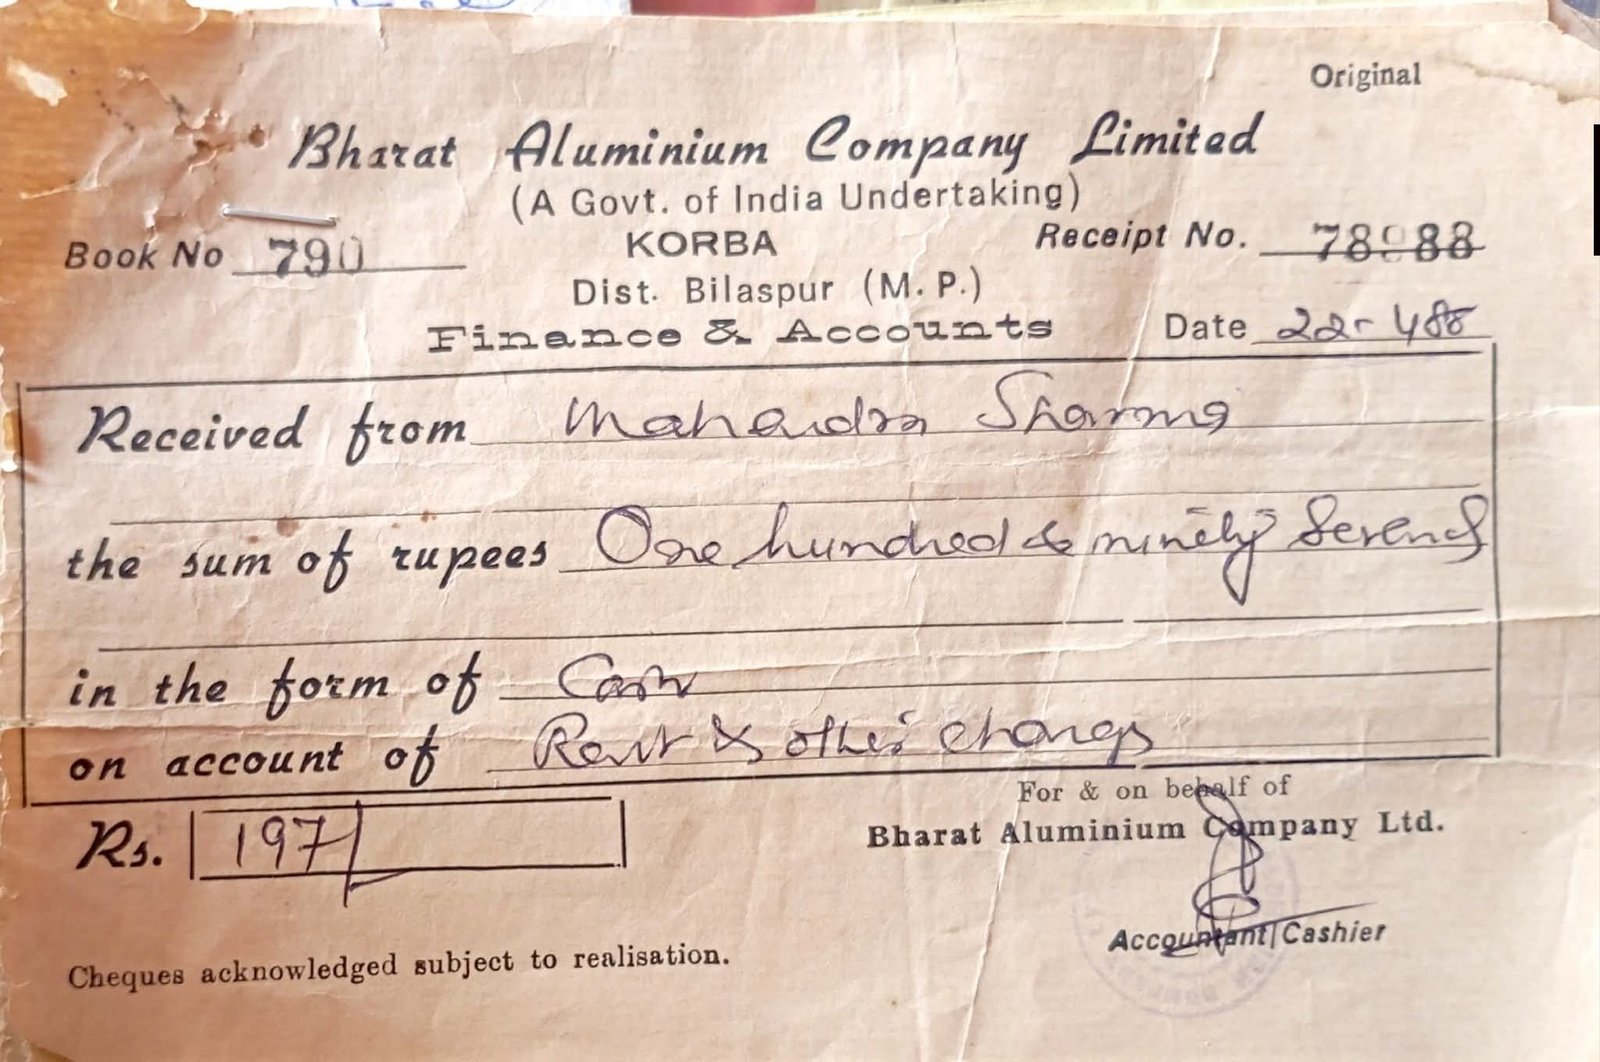 Original
Bharat Aluminium Company Limited
(A Govt. of India Undertaking)
Book No 790 KORBA Receipt No.
Dist. Bilaspur (M. P.)
Finance & Accounts Date 22-488
Received from Mahendra Sharma
the sum of rupees One hundred & ninety Seven
in the form of Cash
on account of Rent & other charges
For & on behalf of
Rs. 197/ Bharat Aluminium Company Ltd.
Accountant/Cashier
Cheques acknowledged subject to realisation.